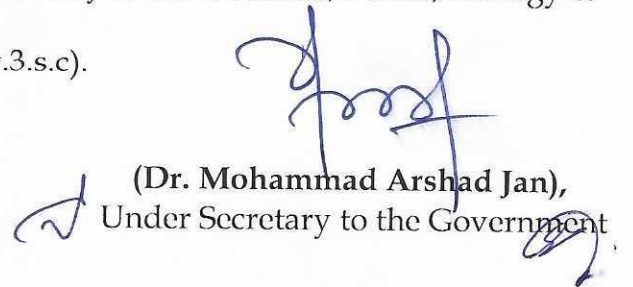 .3.s.c).
(Dr. Mohammad Arshad Jan),
Under Secretary to the Government